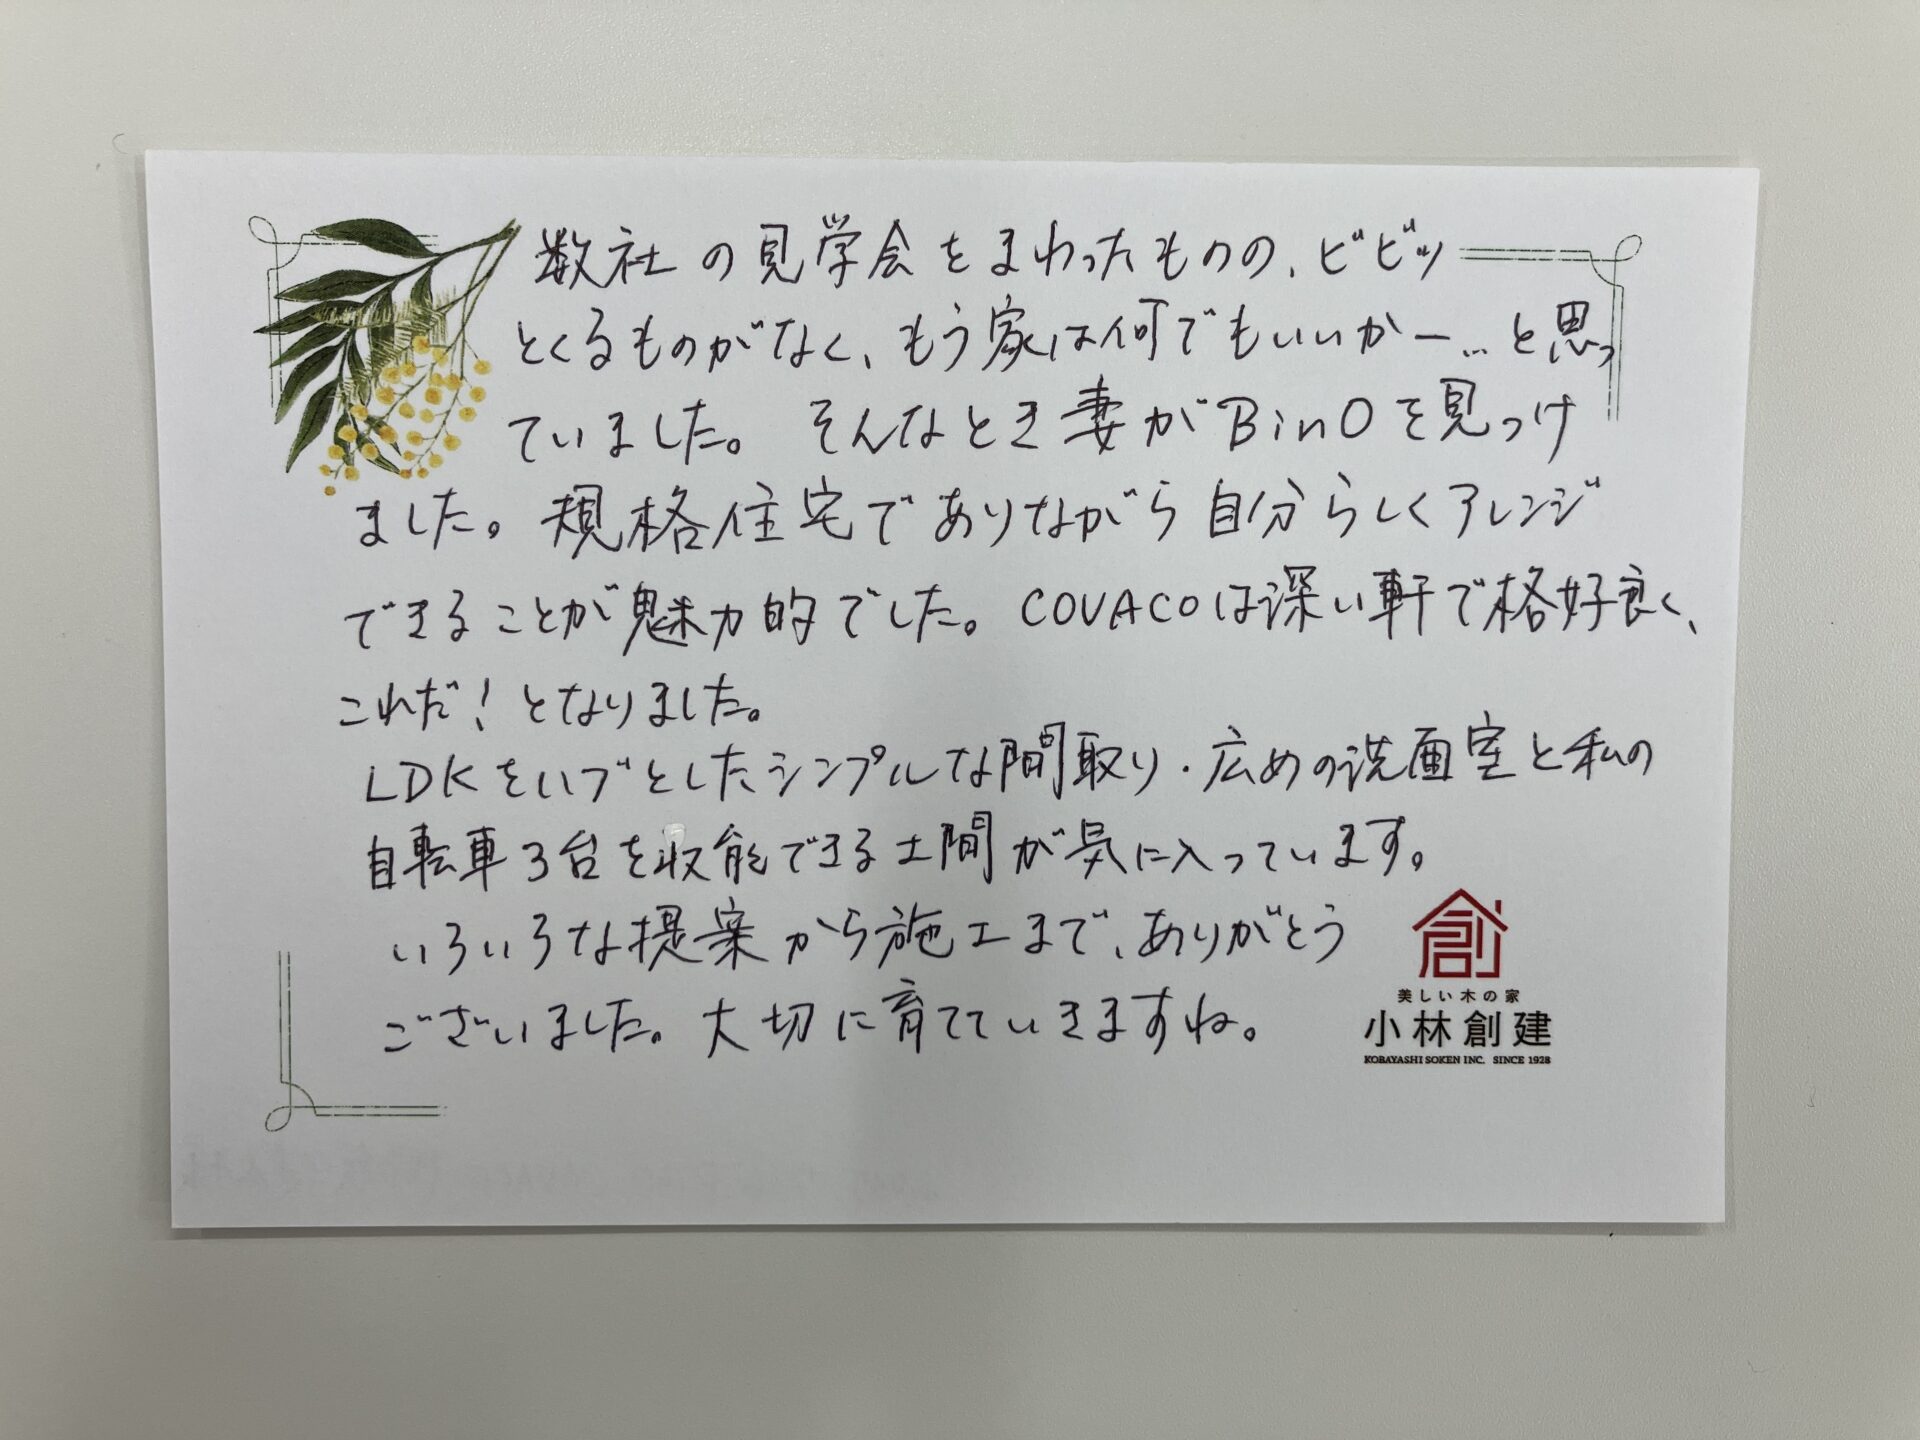 数社の見学会をまわったものの、ビビッ
とくるものがなく、もう家は何でもいいかー…と思っ
ていました。そんなとき妻がBinOを見つけ
ました。規格住宅でありながら自分らしくアレンジ
できることが魅力的でした。COVACOは深い軒で格好良く、
これだ!となりました。
LDKをハブとしたシンプルな間取り・広めの洗面室と私の
自転車3台を収納できる土間が気に入っています。
いろいろな提案から施工まで、ありがとう
ございました。大切に育てていきますね。
創
美しい木の家
小林創建
KOBAYASHI SOKEN INC. SINCE 1928